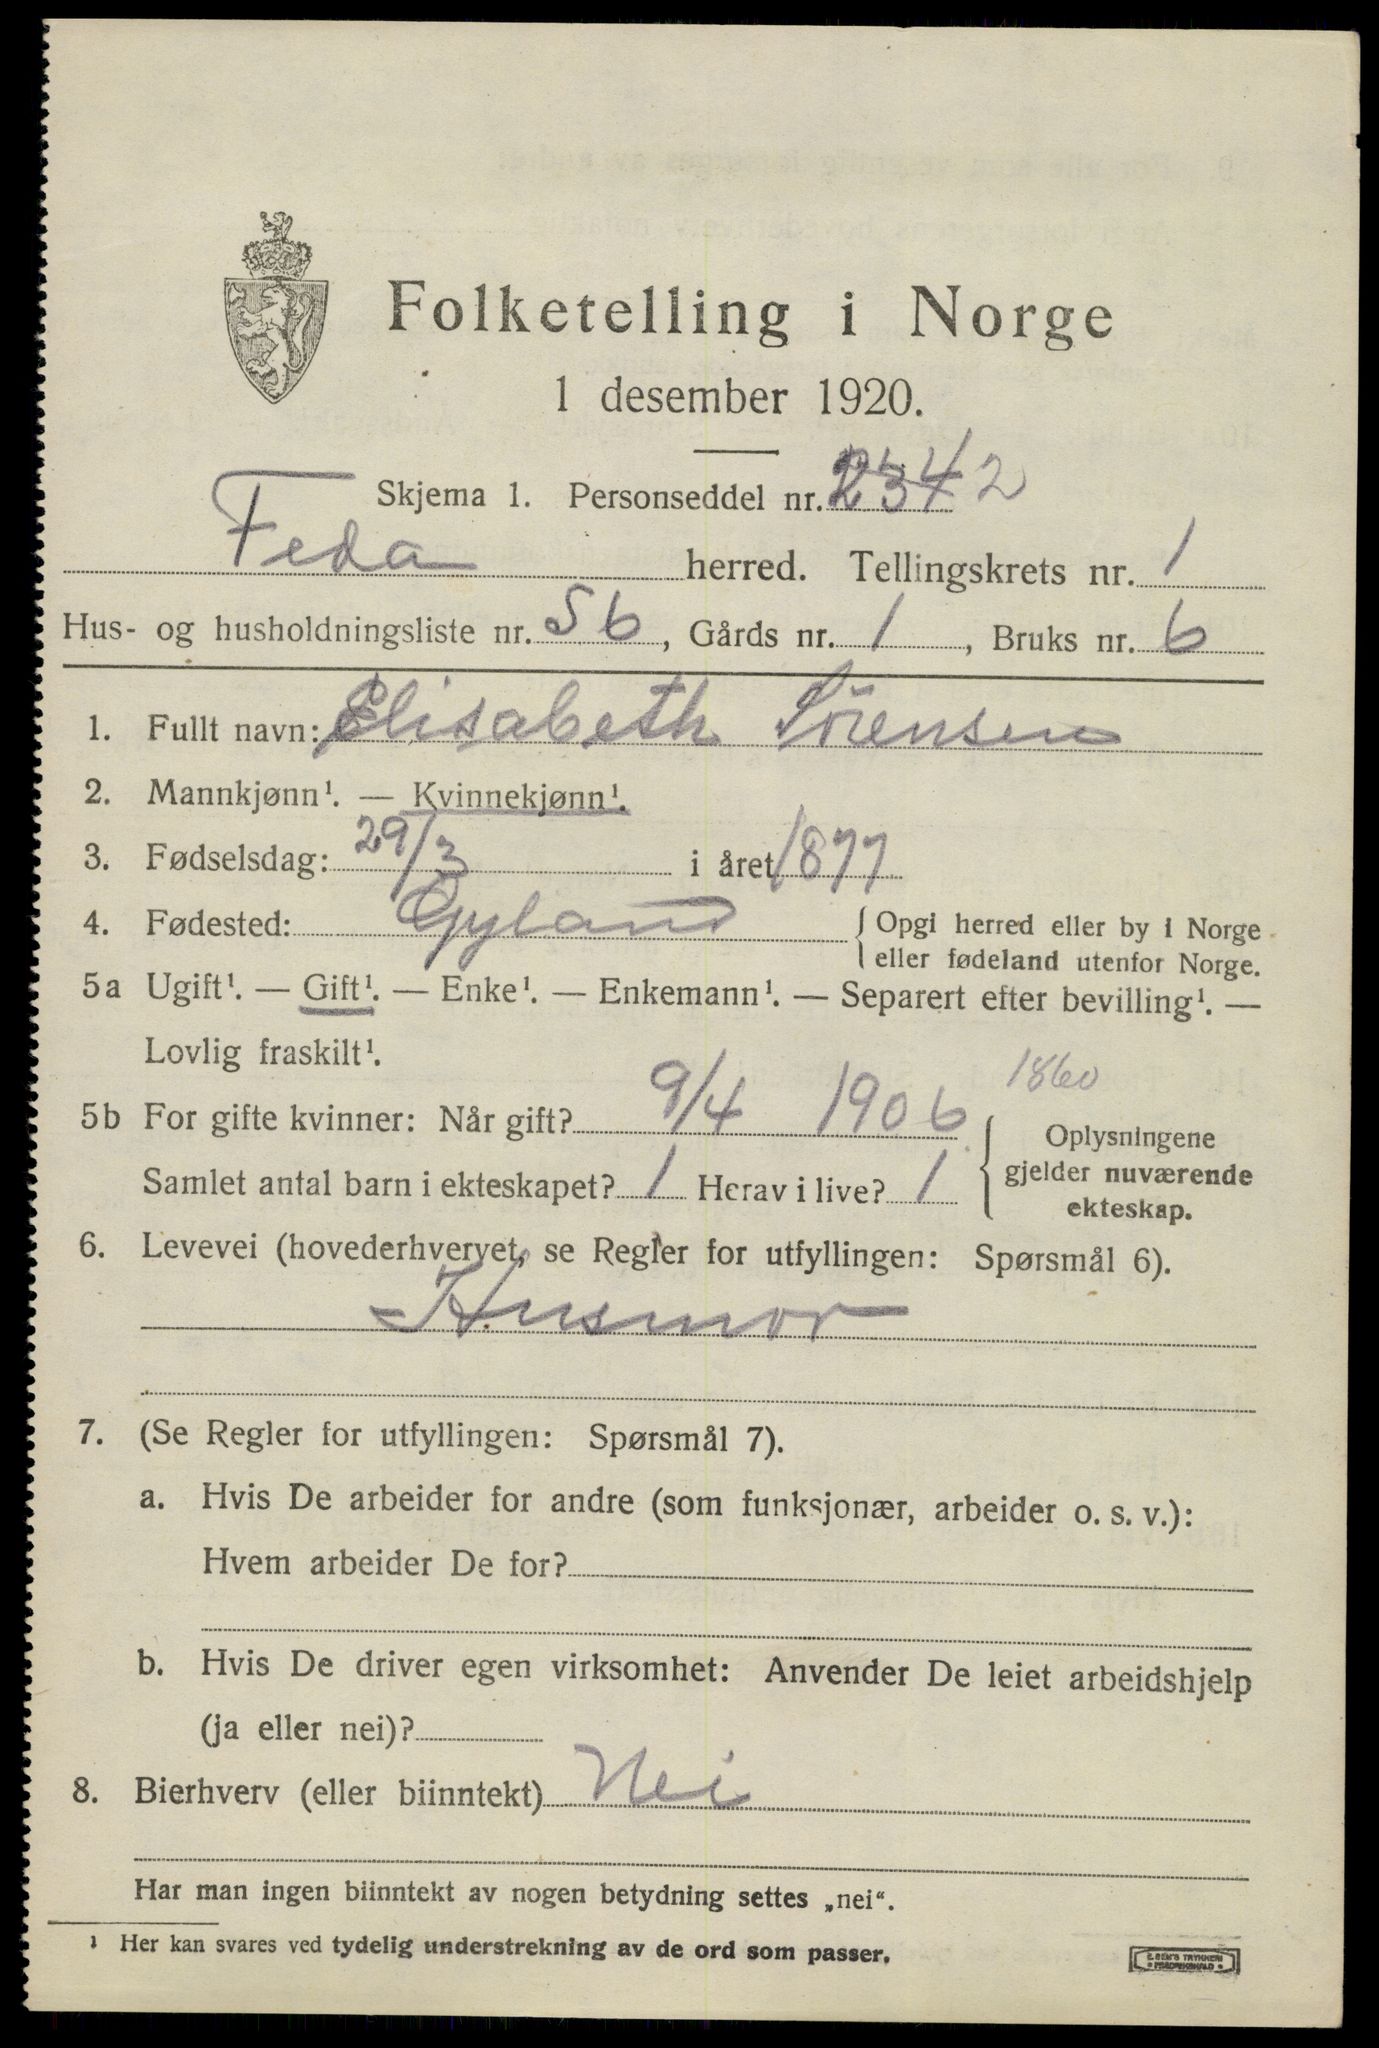 Folketelling i Norge
1 desember 1920.
Skjema 1. Personseddel nr.
Feda herred. Tellingskrets nr. 1
Hus- og husholdningsliste nr. 56, Gårds nr. 1, Bruks nr. 6
1. Fullt navn: Elisabeth Sörensen
2. Mannkjønn¹. — Kvinnekjønn¹.
3. Fødselsdag: 29/3 i året 1877
4. Fødested: Gyland { Opgi herred eller by i Norge
eller fødeland utenfor Norge.
5a Ugift¹. — Gift¹. — Enke¹. — Enkemann¹. — Separert efter bevilling¹. —
Lovlig fraskilt¹.
1860
5b For gifte kvinner: Når gift? 9/4 1906
Samlet antal barn i ekteskapet? 1 Herav i live? 1
{ Oplysningene
gjelder nuværende
ekteskap.
6. Levevei (hovederhvervet, se Regler for utfyllingen: Spørsmål 6).
Husmor
7. (Se Regler for utfyllingen: Spørsmål 7).
a. Hvis De arbeider for andre (som funksjonær, arbeider o. s. v.):
Hvem arbeider De for?
b. Hvis De driver egen virksomhet: Anvender De leiet arbeidshjelp
(ja eller nei)?
8. Bierhverv (eller biinntekt) Nei
Har man ingen biinntekt av nogen betydning settes „nei“.
¹ Her kan svares ved tydelig understrekning av de ord som passer.
E. SEM'S TRYKKERI
• FREDRIKSHALD •